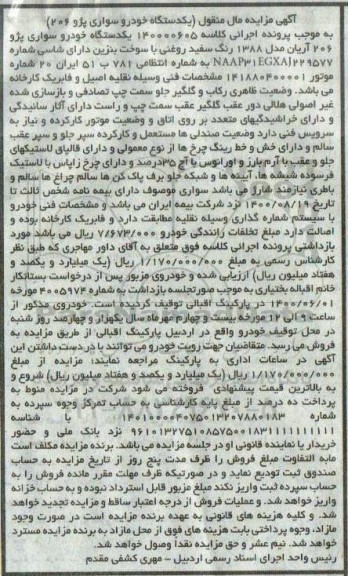 آگهی مزایده مال منقول (یکدستگاه خودرو سواری پژو ۲۰۶)
به موجب پرونده اجرائی کلاسه ۱۴۰۰۰۰۶۰۵ یکدستگاه خودروی سواری پژو
۲۰۶ آریان مدل ۱۳۸۸ رنگ سفید روغنی با سوخت بنزین دارای شاسی شماره
NAAP۳۱EGXAJ۲۲۹۵۷۷ به شماره انتظامی ۷۸۱ ب ۵۱ ایران ۲۰ شماره
موتور ۱۴۱۸۸۰۴۰۰۰۱ مشخصات فنی وسیله نقلیه اصیل و فابریک کارخانه
می باشد. وضعیت ظاهری رکاب و گلگیر جلو سمت چپ تصادفی و بازسازی شده
غیر اصولی هلالی دور عقب گلگیر عقب سمت چپ و راست دارای آثار سائیدگی
و دارای خراشیدگیهای متعدد بر روی اتاق و وضعیت موتور کارکرده و نیاز به
سرویس فنی دارد وضعیت صندلی ها مستعمل و کارکرده سپر جلو و سپر عقب
سالم و دارای خش و خط رینگ چرخ ها از نوع معمولی و دارای قالپاق لاستیکهای
جلو و عقب با آرم بارز و اورانوس با آج ۳۵درصد و دارای چرخ زاپاس با لاستیک
فرسوده شیشه ها، آیینه ها و شبکه جلو برف پاک کن ها سالم چراغ ها سالم و
باطری نیازمند شارژ می باشد سواری موصوف دارای بیمه نامه شخص ثالث تا
تاریخ ۱۴۰۰/۰۸/۱۹ نزد شرکت بیمه ایران می باشد و مشخصات فنی خودرو
با سیستم شماره گذاری وسیله نقلیه مطابقت دارد و فابریک کارخانه بوده و
اصالت دارد مبلغ تخلفات رانندگی خودرو ۷/۶۷۳/۰۰۰ ریال می باشد مورد
بازداشتی پرونده اجرائی کلاسه فوق متعلق به آقای داور مهاجری که طبق نظر
کارشناس رسمی به مبلغ ۱/۱۷۰/۰۰۰/۰۰۰ ریال (یک میلیارد و یکصد و
هفتاد میلیون ریال) ارزیابی شده و خودروی مزبور پس از درخواست بستانکار
خانم اقباله بختیاری به موجب صورتجلسه بازداشت به شماره ۴۰۰۵۹۷۴ مورخه
۱۴۰۰/۰۶/۰۱ در پارکینگ اقبالی توقیف گردیده است. خودروی مذکور از
ساعت ۹ الی ۱۲ مورخه بیست و چهارم مهرماه سال یکهزار و چهارصد روز شنبه
در محل توقیف خودرو واقع در اردبیل پارکینگ اقبالی از طریق مزایده به
فروش می رسد. متقاضیان جهت رویت خودرو می توانند با در دست داشتن این
آگهی در ساعات اداری به پارکینگ مراجعه نمایند؛ مزایده از مبلغ
۱/۱۷۰/۰۰۰/۰۰۰ ریال (یک میلیارد و یکصد و هفتاد میلیون ریال) شروع و
به بالاترین قیمت پیشنهادی فروخته می شود شرکت در مزایده منوط به
پرداخت ده درصد از مبلغ پایه کارشناسی به حساب تمرکز وجوه سپرده به
شماره با شناسه
نزد بانک ملی و حضور
خریدار یا نماینده قانونی او در جلسه مزایده می باشد. برنده مزایده مکلف است
مابه التفاوت مبلغ فروش را ظرف مدت پنج روز از تاریخ مزایده به حساب
صندوق ثبت تودیع نماید و در صورتیکه ظرف مهلت مقرر مانده فروش را به
حساب سپرده ثبت واریز نکند مبلغ مزبور قابل استرداد نبوده و به حساب خزانه
واریز خواهد شد. و عملیات فروش از درجه اعتبار ساقط و مزایده تجدید خواهد
شد. و کلیه هزینه های قانونی به عهده برنده مزایده است در صورت وجود
مازاد، وجوه پرداختی بابت هزینه های فوق از محل مازاد به برنده مزایده مسترد
خواهد شد. نیم عشر و حق مزایده نقداً وصول خواهد شد.
رئیس واحد اجرای اسناد رسمی اردبیل – مهری کشفی مقدم